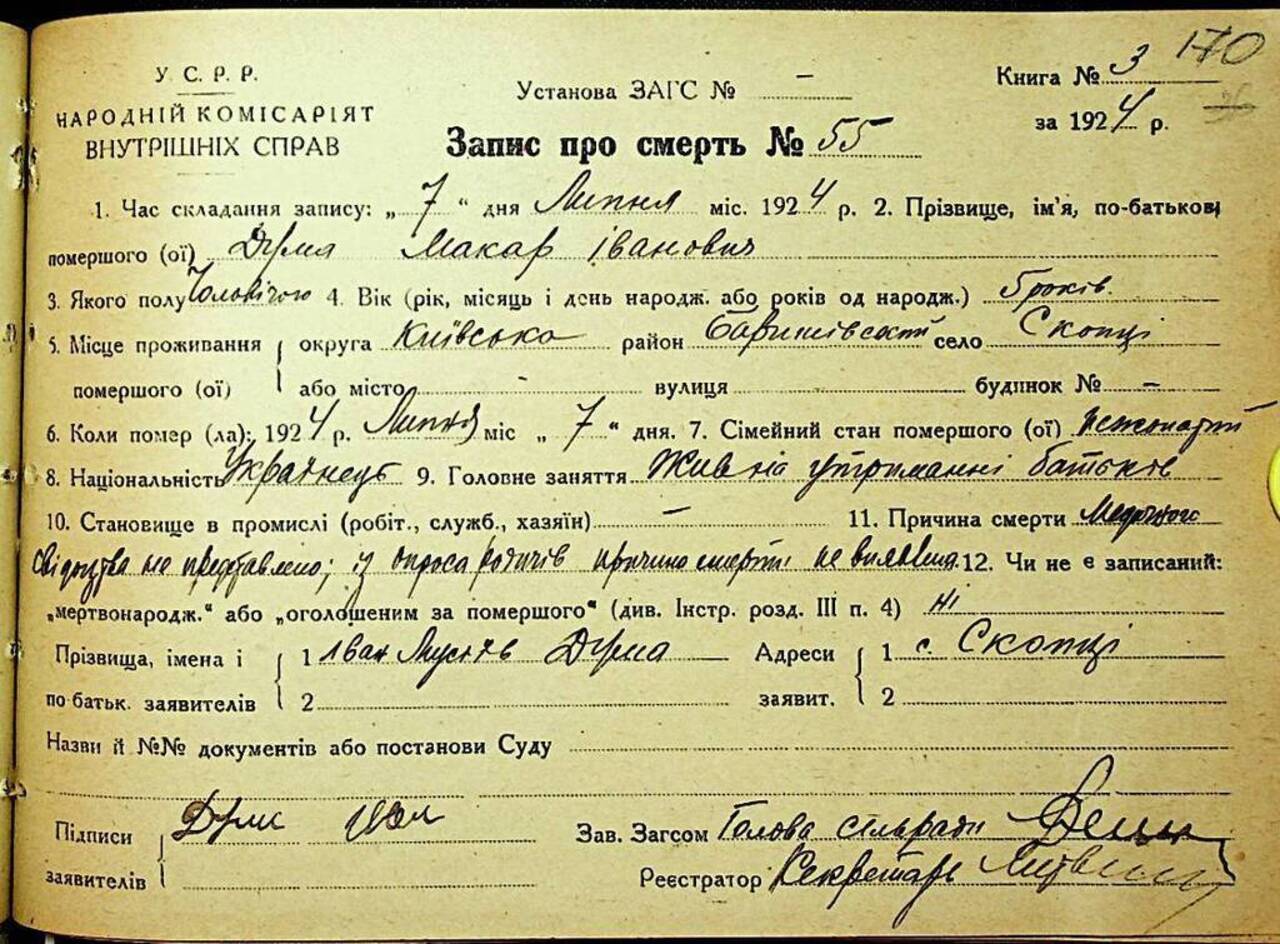 170
У. С. Р. Р.
НАРОДНІЙ КОМІСАРІЯТ
ВНУТРІШНІХ СПРАВ
Установа ЗАГС № –
Книга № 3
за 1924 р.
Запис про смерть № 55
1. Час складання запису: „7“ дня Липня міс. 1924 р. 2. Прізвище, ім'я, по-батькові
помершого (ої) Дума Макар Іванович
3. Якого полу Чоловічого 4. Вік (рік, місяць і день народж. або років од народж.) 5 років.
5. Місце проживання { округа Київська район Баришівський село Скопці
помершого (ої) або місто - вулиця будинок № –
6. Коли помер (ла): 1924 р. Липня міс „7“ дня. 7. Сімейний стан помершого (ої) нежонатий
8. Національність Українець 9. Головне заняття Жив на утриманні батьків
10. Становище в промислі (робіт., служб., хазяїн) – 11. Причина смерти Медичного
свідоцтва не представлено; із опроса родичів причина смерті не виявлена. 12. Чи не є записаний:
„мертвонародж.“ або „оголошеним за помершого“ (див. Інстр. розд. III п. 4) ні
Прізвища, імена і { 1 Іван Дума Адреси { 1 с. Скопці
по батьк. заявителів 2 заявит. 2
Назви й №№ документів або постанови Суду
Підписи { Дума Зав. Загсом Голова сільради
заявителів Реєстратор Секретарь